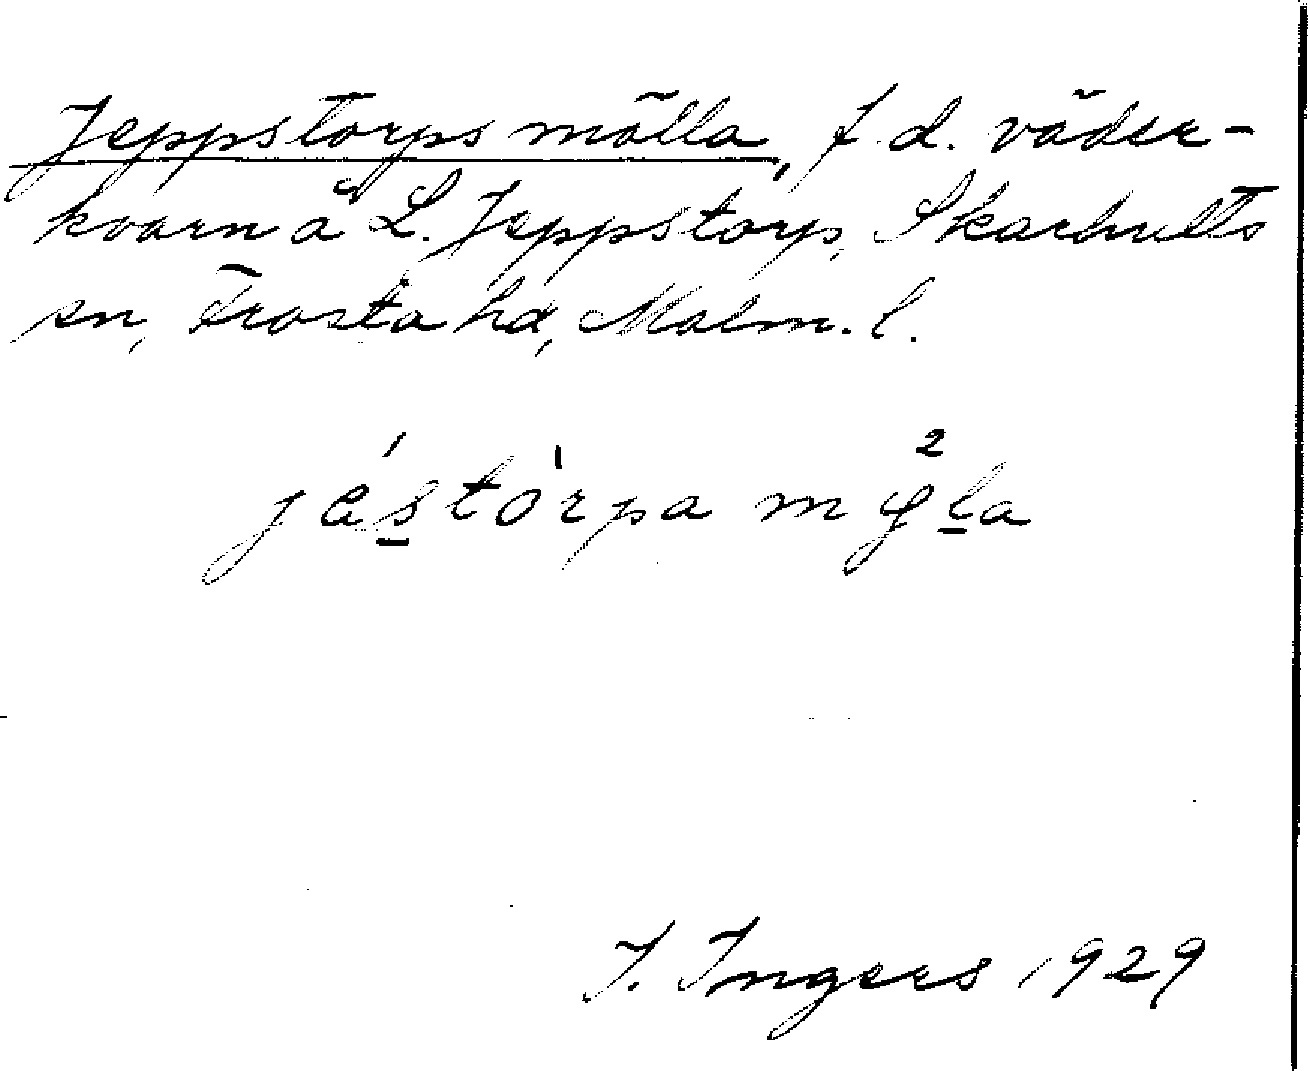 Jeppstorps mölla, f.d. väder-
kvarn å L. Jeppstorp, Skarhults
sn, Frosta hd, Malm. l.
jás̲tórpa mø̨²l̲a
I. Ingers 1929